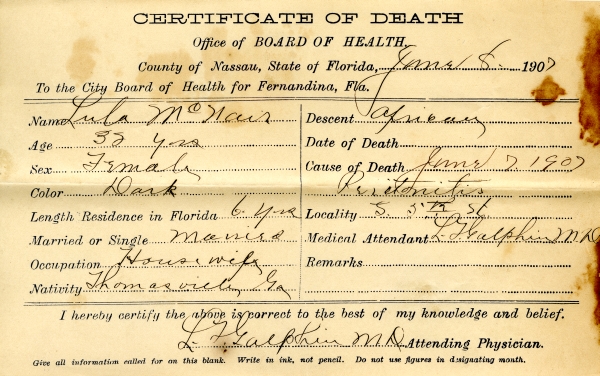 CERTIFICATE OF DEATH
Office of BOARD OF HEALTH,
County of Nassau, State of Florida, June 8 1907
To the City Board of Health for Fernandina, Fla.
Name Lula McNair
Age 38 yrs
Sex Female
Color Dark
Length Residence in Florida 6 yrs
Married or Single Married
Occupation Housewife
Nativity Thomasville, Ga
Descent African
Date of Death
Cause of Death June 7 1907
Peritonitis
Locality S. 5th St
Medical Attendant L. Galphin MD
Remarks
I hereby certify the above is correct to the best of my knowledge and belief.
L. F Galphin MD Attending Physician.
Give all information called for on this blank. Write in ink, not pencil. Do not use figures in designating month.